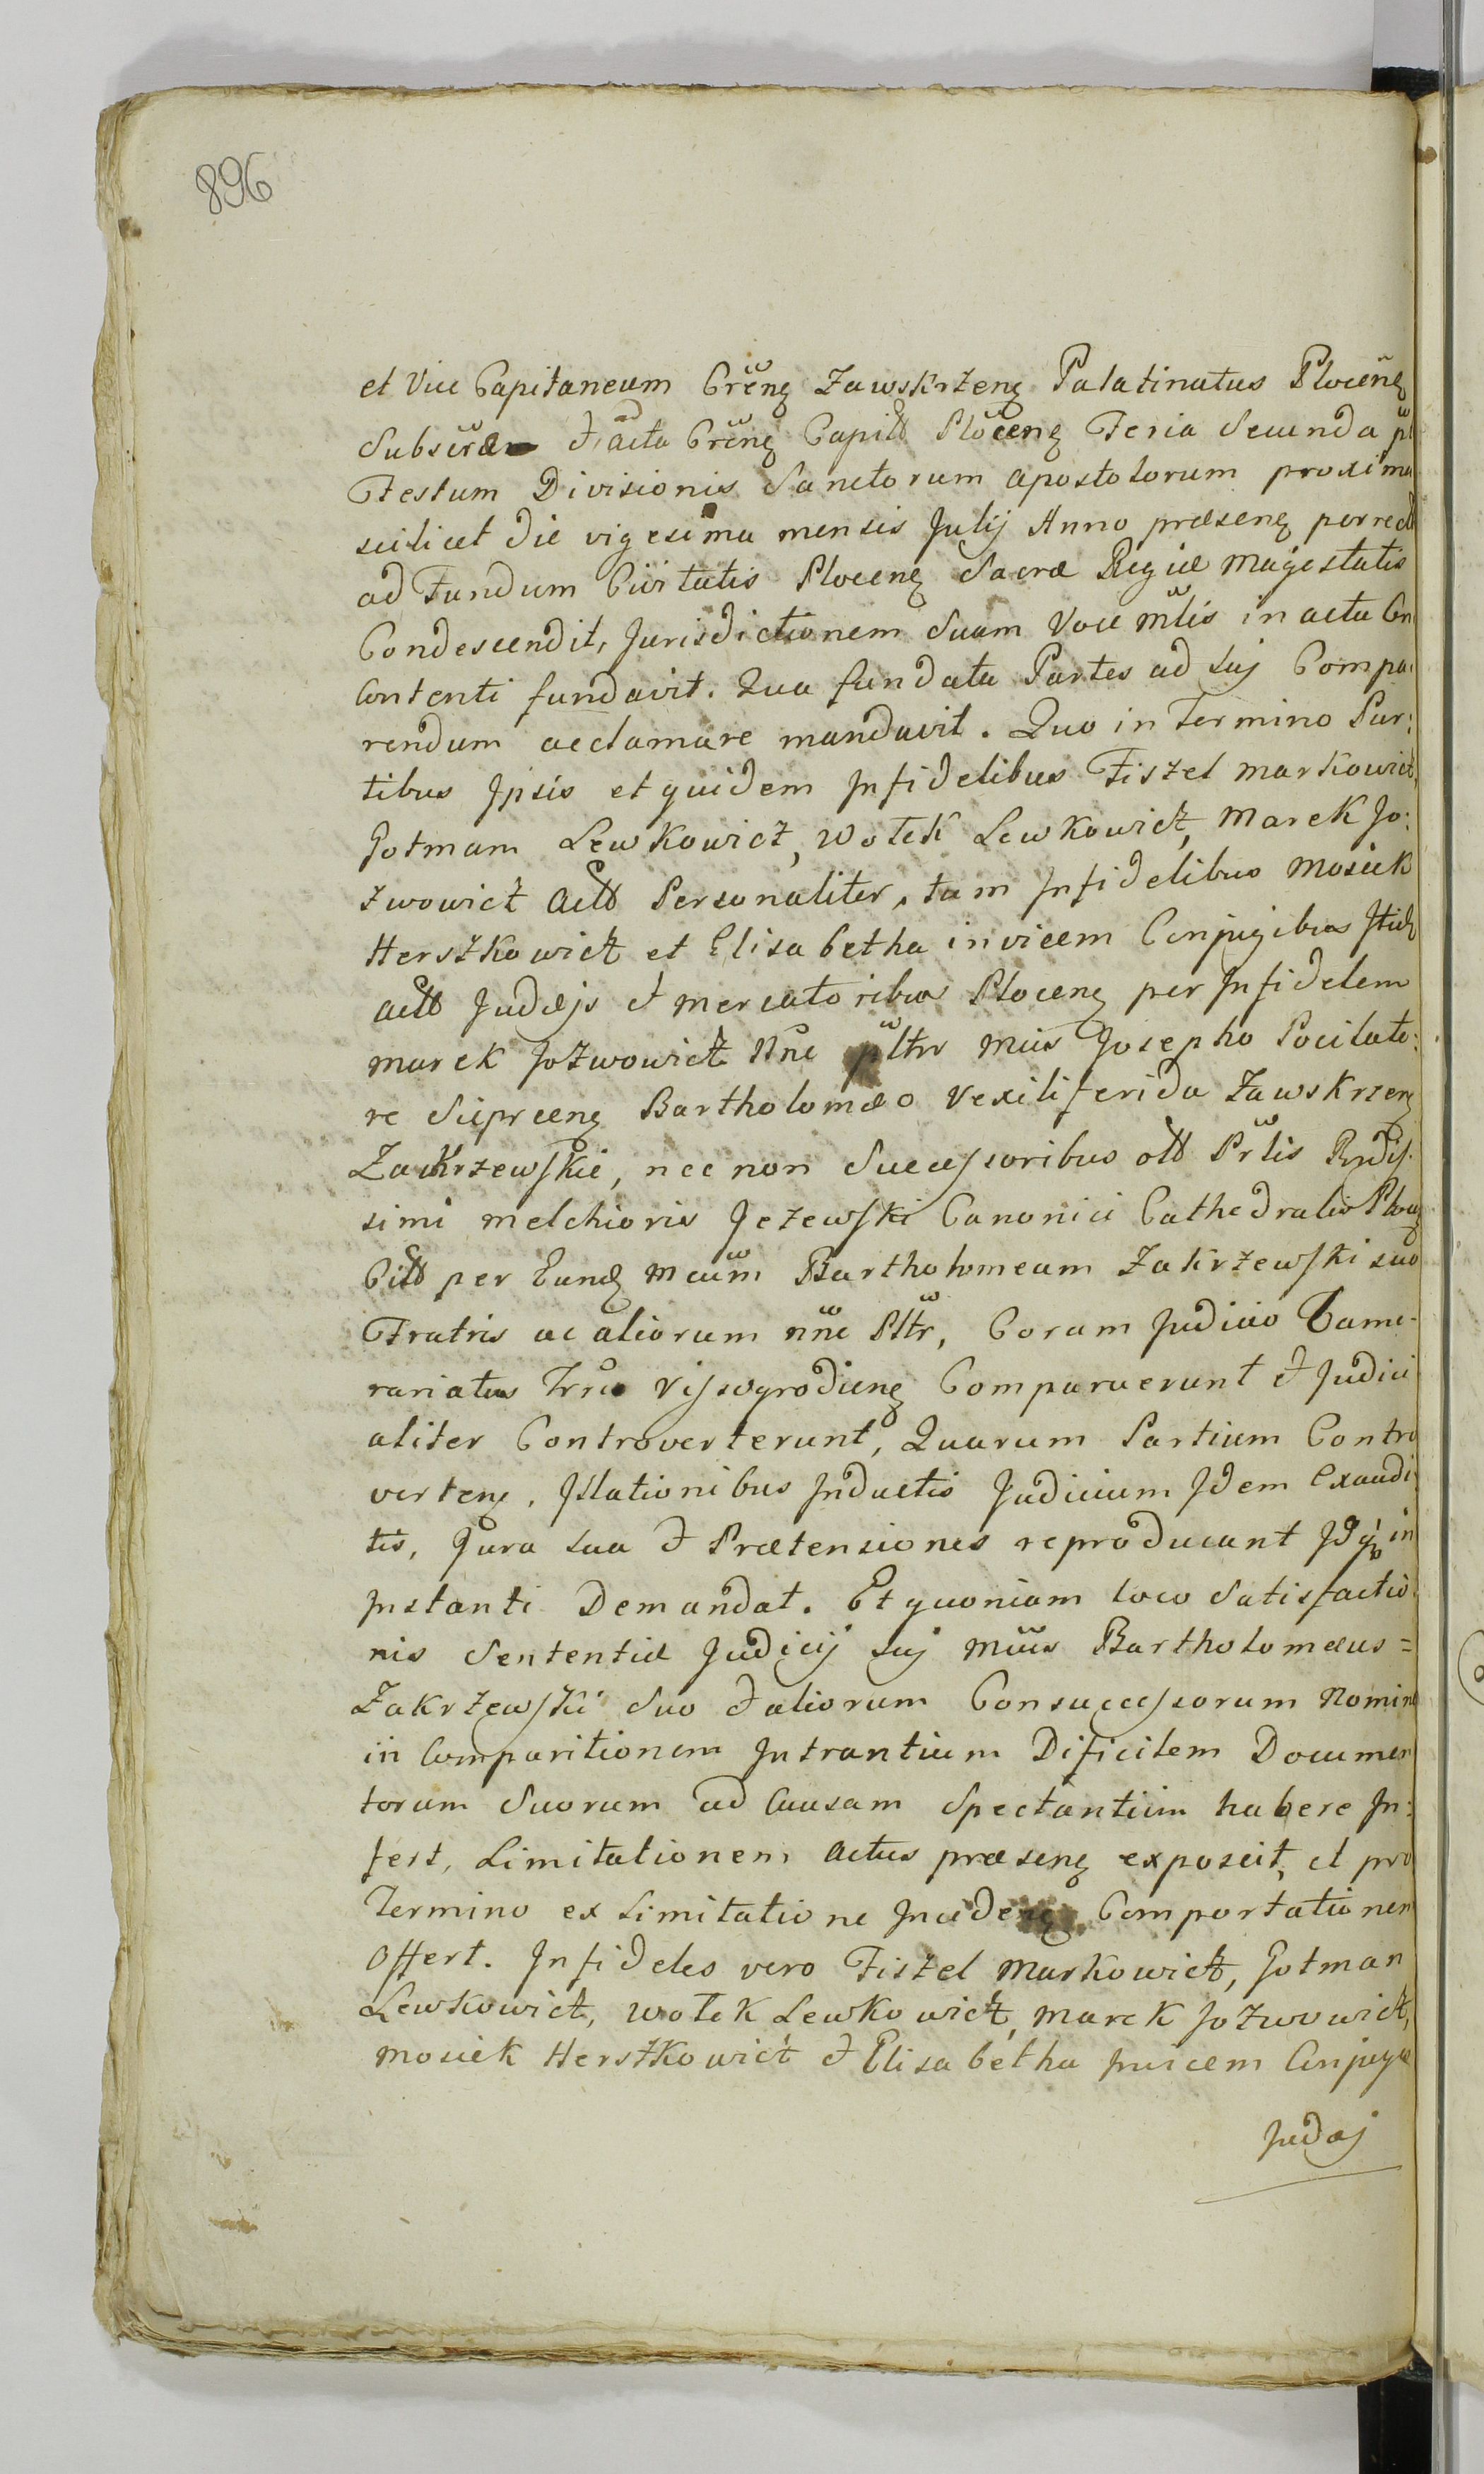 896
et Vice Capitaneum Crĕnę Zawskrzenę Palatinatus Plocenę
Subscrăe & ad acta Crĕnę Capitł Plŏcenę Feria Secunda pŏ
Festum Divisionis Sanctorum apostolorum proxima
scilicet die vigesima mensis Julij Anno præsenę porrectł
ad Fundum Civitatis Plocenę Sacræ Regiæ Majestatis
Condescendit, Jurisdictionem Suam Voce mtlis in actu Con
Contenti fundavit. Qua fundata Partes ad suj Compa:
rendum acclamare mandavit. Quo in Termino Par:
tibus Jpsis et quidem Jnfidelibus Fiszel Markowicz,
Gotman Lewkowicz, Wołek Lewkowicz, Marek Jo:
zwowicz Actł Personaliter, tam Jnfidelibus Mosiek
Herszkowicz et Elisabetha invicem Conjugibus Jtidę
Actł Judæjs & Mercatoribus Plocenę per Jnfidelem
Marek Jozwowicz Nŏie pltrr Mŭis Josepho Pocilato:
re Siepreenę Bartholomæo Vexiliferida Zawskrzenę
Zakrzewskie, nec non Successoribus otł Prtlis Rndis
simi Melchioris Jezewski Canonici Cathedralis Plocę
Citł per Eundę Mcum Bartholomeum Zakrzewski suo
Fratris ac aliorum nnĕ Pltr, Coram Judicio Came-
rariatus Trrıs Vissogrodienę Comparuerunt & Judici
aliter Controverterunt, Quarum Partium Contro
vertenę, Jllationibus Jnductis Judicium Jdem Exaudi
tis, Jura sua & Prætensiones reproducant Jdq in
Jnstanti Demandat. Et quoniam loco Satisfactio
nis Sententiæ Judicij suj Mŭus Bartholomæus =
Zakrzewski Suo & aliorum Consuccessorum Nomine
in Comparitionem Jntrantium Dificilem Documen
torum Suorum ad Causam Spectantium habere Jn:
fert, Limitationem Actus præsenę exposcit, et pro
Termino ex Limitatione Jncidenę Comportationem
Offert. Jnfideles vero Fiszel Markowicz, Gotman
Lewkowicz, Wołek Lewkowicz, Marek Jozwowicz,
Mosiek Herszkowicz & Elisabetha Jnvicem Conjuges
Judæj